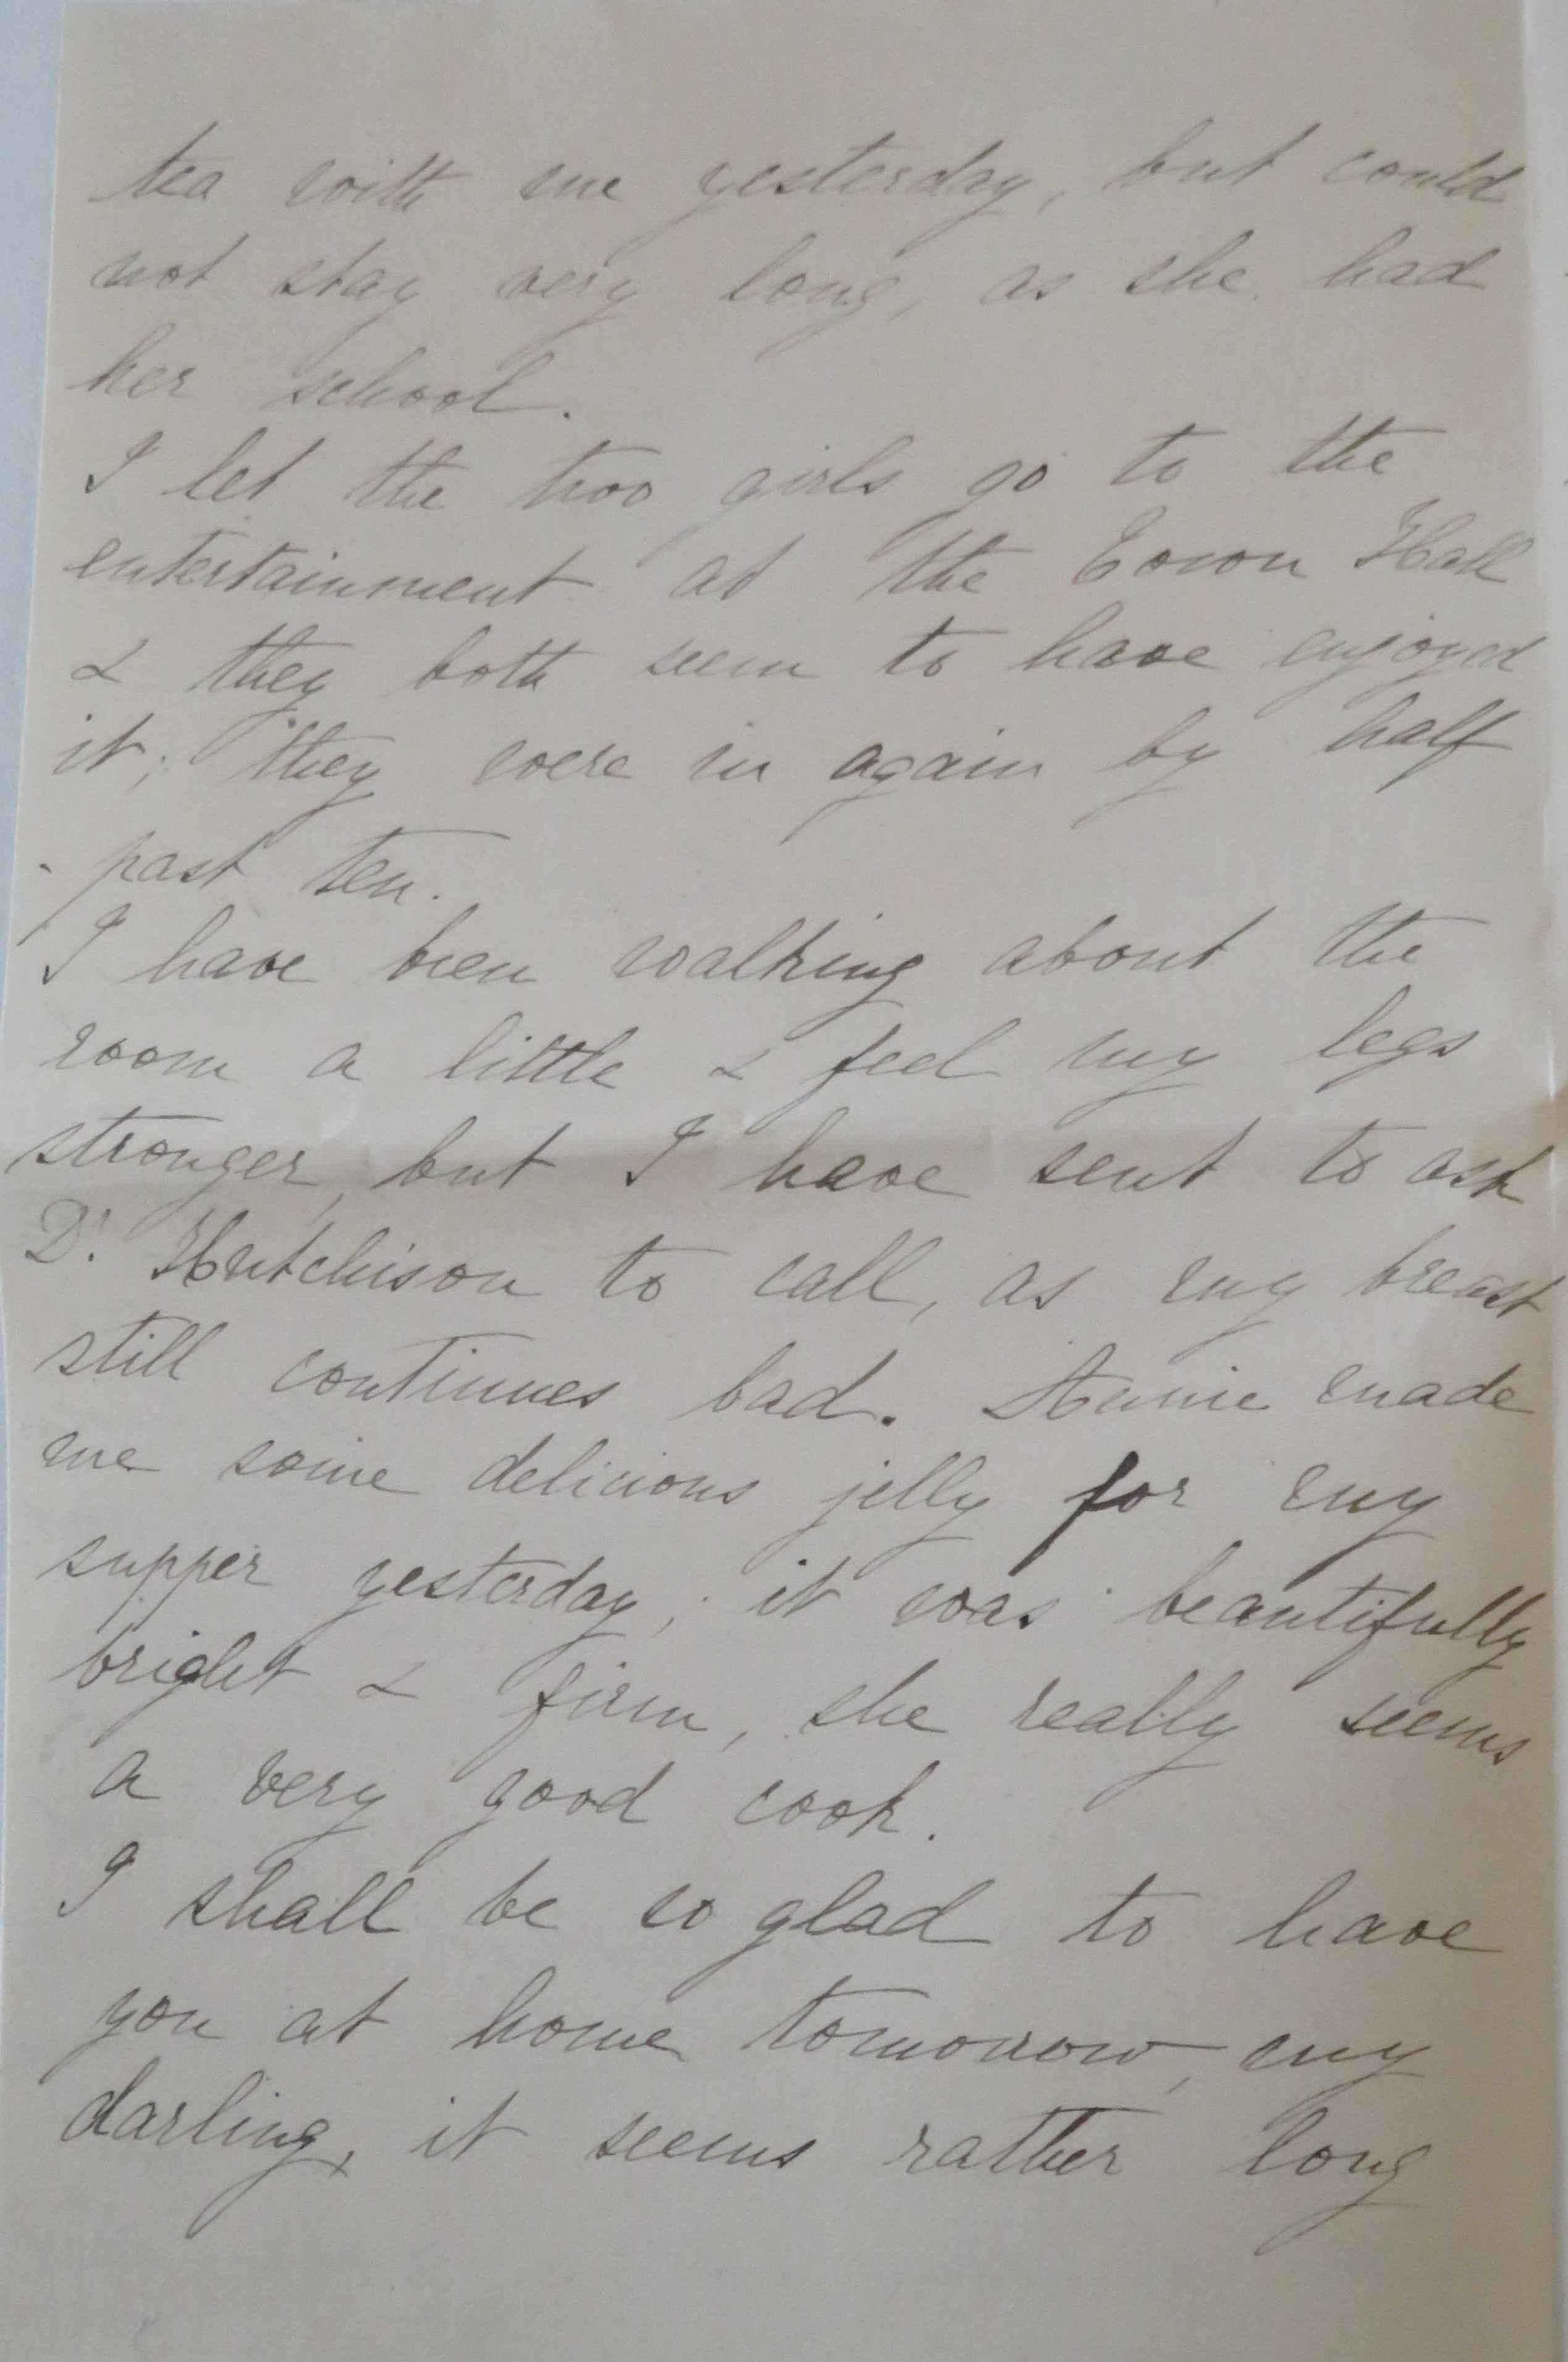 tea with me yesterday, but could
not stay very long, as she had
her school.
I let the two girls go to the
entertainment at the Town Hall
& they both seem to have enjoyed
it; they were in again by half
- past ten.
I have been walking about the
room a little & feel my legs
stronger, but I have sent to ask
Dr. Hutchison to call, as my breast
still continues bad. Annie made
me some delicious jelly for my
supper yesterday; it was beautifully
bright & firm, she really seems
a very good cook.
I shall be so glad to have
you at home tomorrow, my
darling, it seems rather long